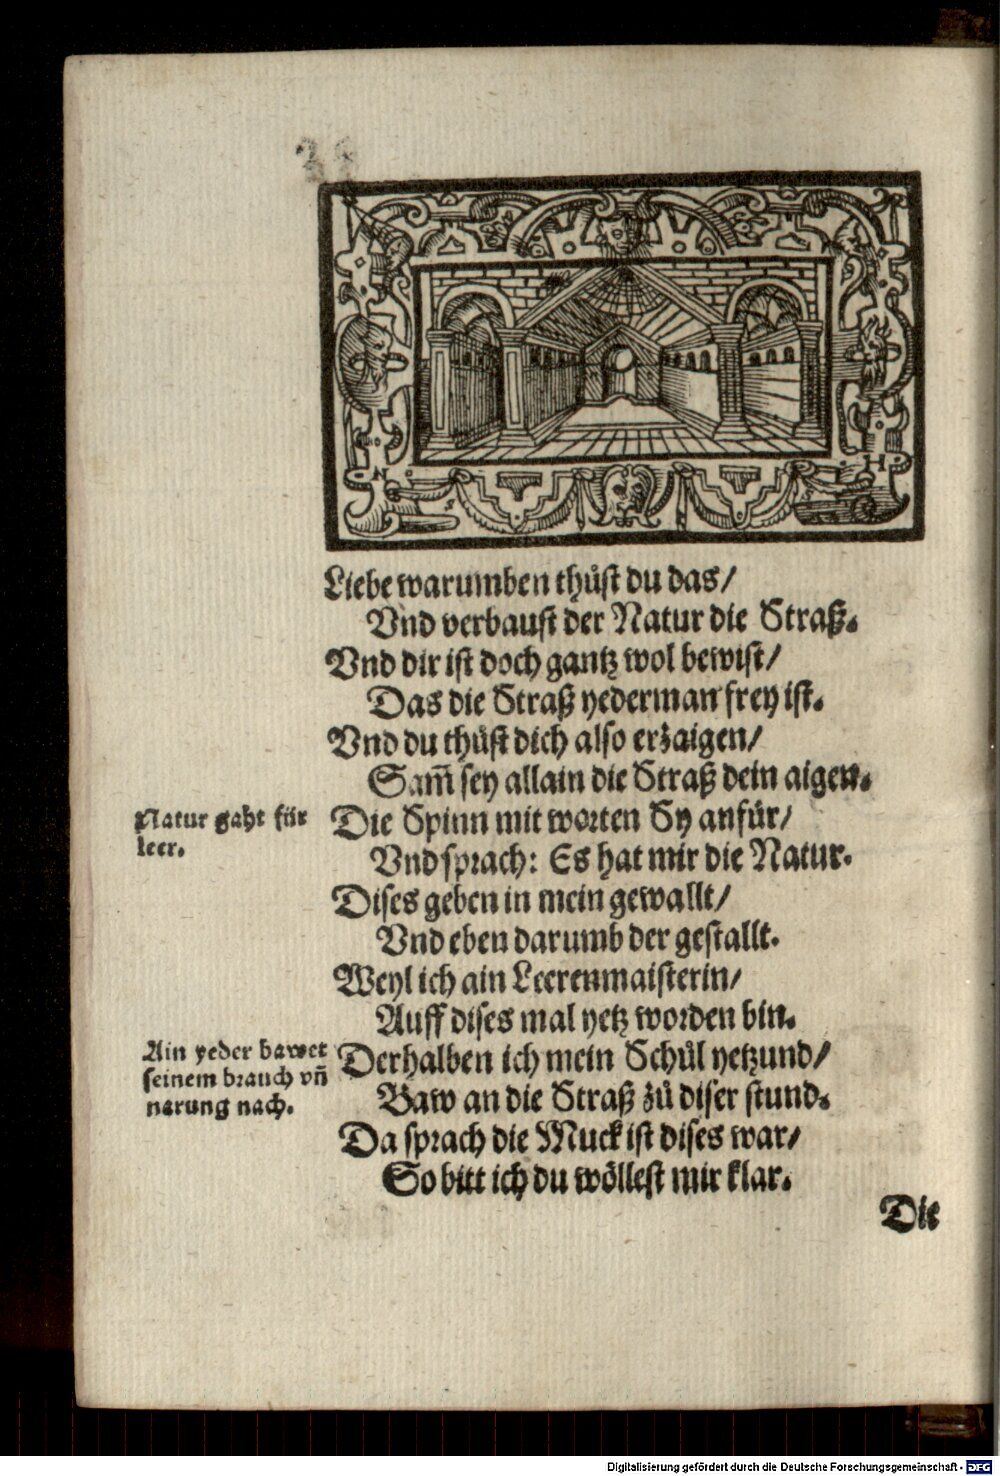 N H
Liebe warumben thuͦst du das/
Vnd verbaust der Natur die Straß.
Vnd dir ist doch gantz wol bewist/
Das die Straß yederman frey ist.
Vnd du thuͦst dich also erzaigen/
Sam̄ sey allain die Straß dein aigen.
Natur gaht für
leer.
Die Spinn mit worten Sy anfür/
Vnd sprach: Es hat mir die Natur.
Dises geben in mein gewallt/
Vnd eben darumb der gestallt.
Weyl ich ain Leerenmaisterin/
Auff dises mal yetz worden bin.
Ain yeder bawet
seinem brauch vn̄
narung nach.
Derhalben ich mein Schuͦl yetzund/
Baw an die Straß zuͦ diser stund.
Da sprach die Muck ist dises war/
So bitt ich du wöllest mir klar.
Die
Digitalisierung gefördert durch die Deutsche Forschungsgemeinschaft - DFG